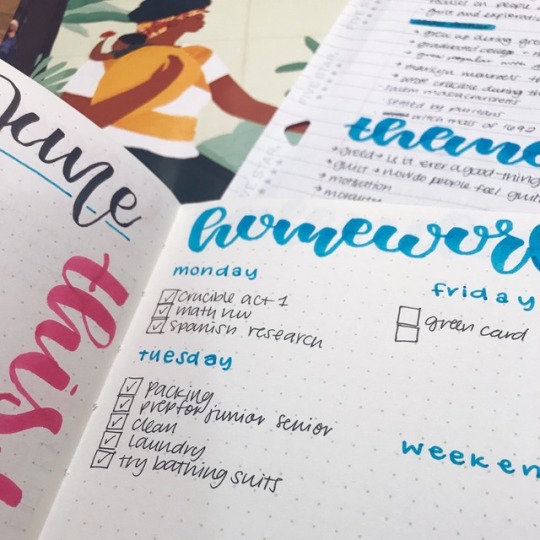 June
this
homewor
monday
crucible act 1
math hw
spanish research
tuesday
packing
prep for junior senior
clean
laundry
try bathing suits
friday
green card
weeken
focuses on people
guilt and exploration
grew up during gre
graduated college
grew popular with d
marilyn
crucible during th
salem massachusetts
settled by puritans
witch mass of 1692
theme
greed → u is never a good thing
guilt → how do people feel guilt
motivation
FIVE STAR